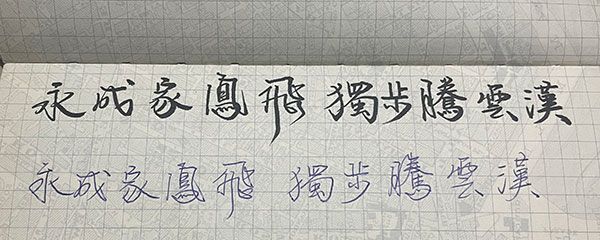 永成家鳳飛 獨步騰雲漢
永成家鳳飛 獨步騰雲漢